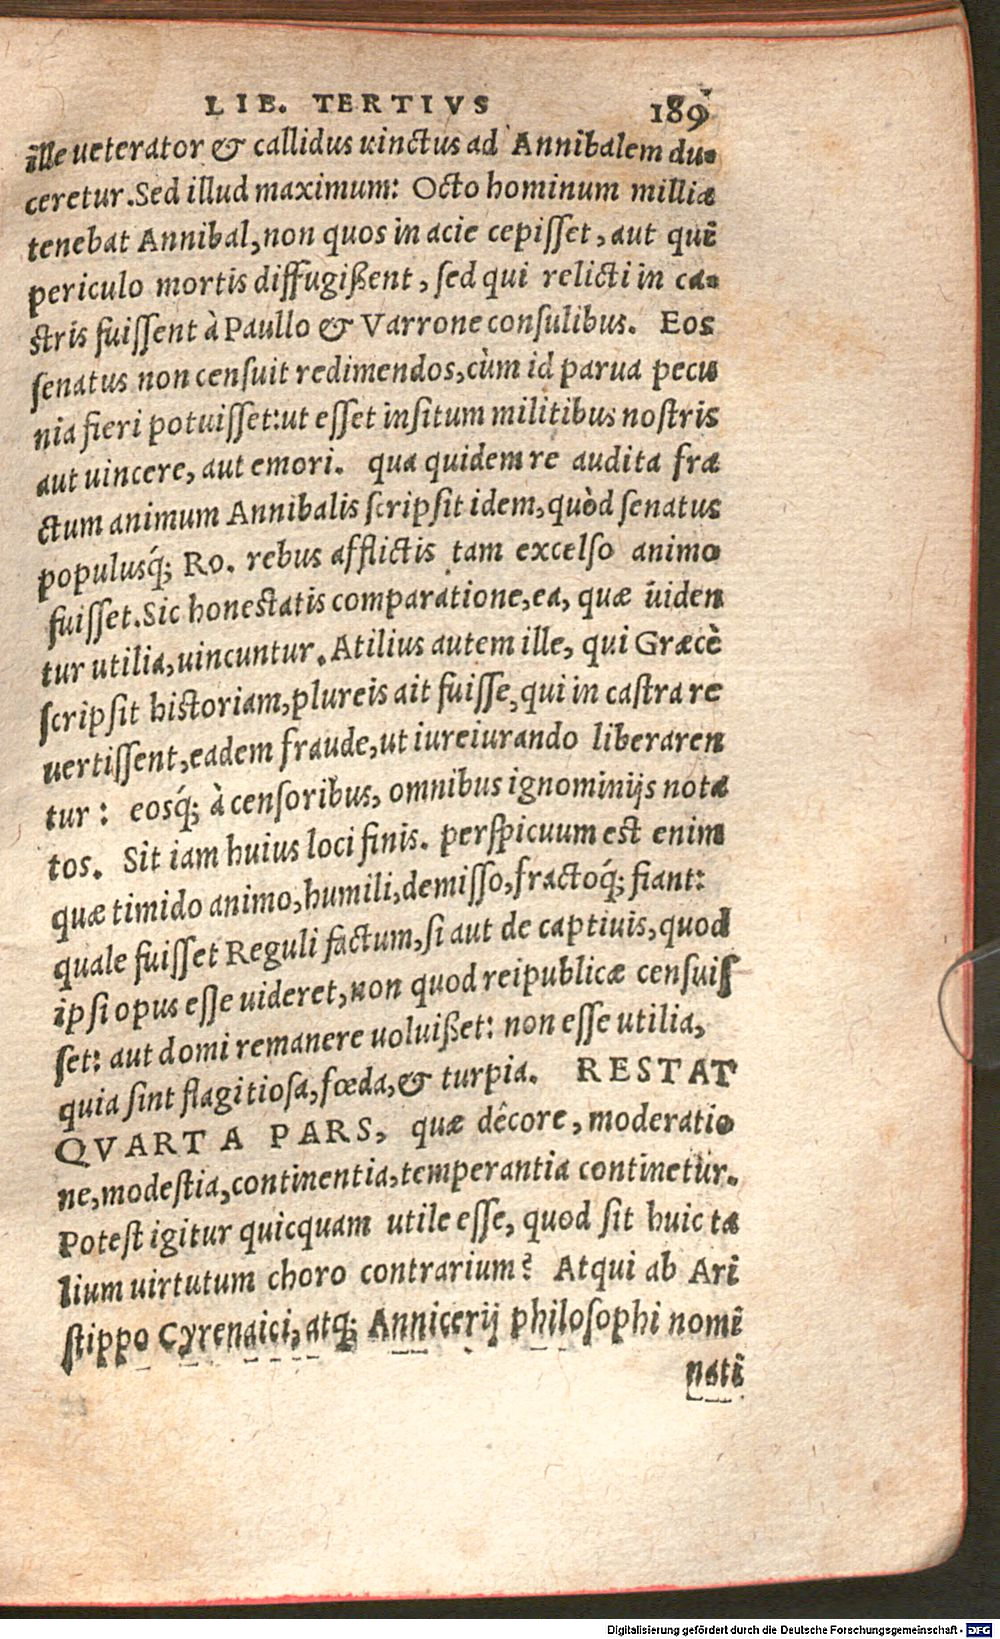 LIB. TERTIVS 189
ille ueterator & callidus uinctus ad Annibalem du-
ceretur. Sed illud maximum: Octo hominum milliæ
tenebat Annibal, non quos in acie cepisset, aut quē
periculo mortis diffugißent, sed qui relicti in ca-
stris fuissent à Paullo & Varrone consulibus. Eos
senatus non censuit redimendos, cùm id parua pecu
nia fieri potuisset: ut esset insitum militibus nostris
aut uincere, aut emori. qua quidem re audita fra
ctum animum Annibalis scripsit idem, quòd senatus
populusq́; Ro. rebus afflictis tam excelso animo
fuisset. Sic honestatis comparatione, ea, quæ uiden
tur utilia, uincuntur. Atilius autem ille, qui Græcè
scripsit historiam, plureis ait fuisse, qui in castra re
uertissent, eadem fraude, ut iureiurando liberaren
tur: eosq́; à censoribus, omnibus ignominijs nota
tos. Sit iam huius loci finis. perspicuum est enim
quæ timido animo, humili, demisso, fractoq́; fiant:
quale fuisset Reguli factum, si aut de captiuis, quod
ipsi opus esse uideret, non quod reipublicæ censuis
set: aut domi remanere uoluißet: non esse utilia,
quia sint flagitiosa, fœda, & turpia. RESTAT
QVARTA PARS, quæ decôre, moderatio
ne, modestia, continentia, temperantia continetur.
Potest igitur quicquam utile esse, quod sit huic ta
lium uirtutum choro contrarium? Atqui ab Ari
stippo Cyrenaici, atq; Annicerij philosophi nomi
nati
Digitalisierung gefördert durch die Deutsche Forschungsgemeinschaft - DFG